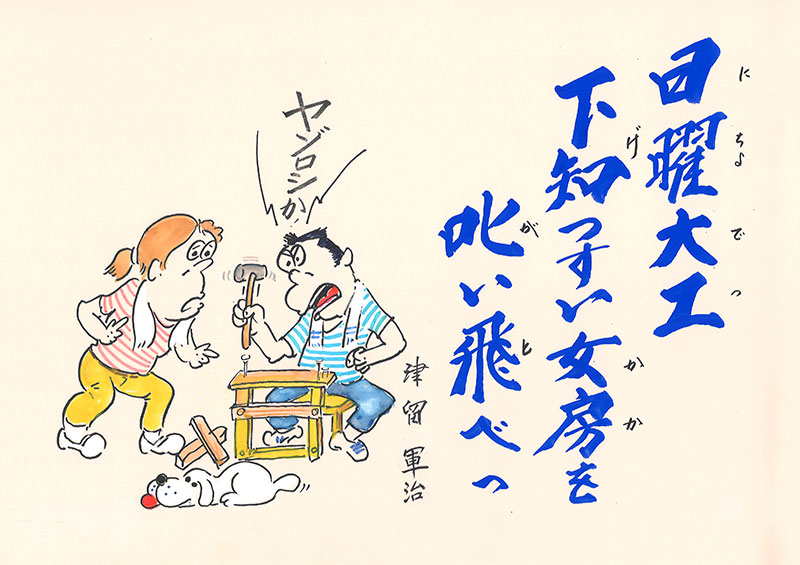 日曜大工
にちよでつ
下知っすい女房を
げかか
叱い飛べっ
がと
ヤゾロシか
津留軍治